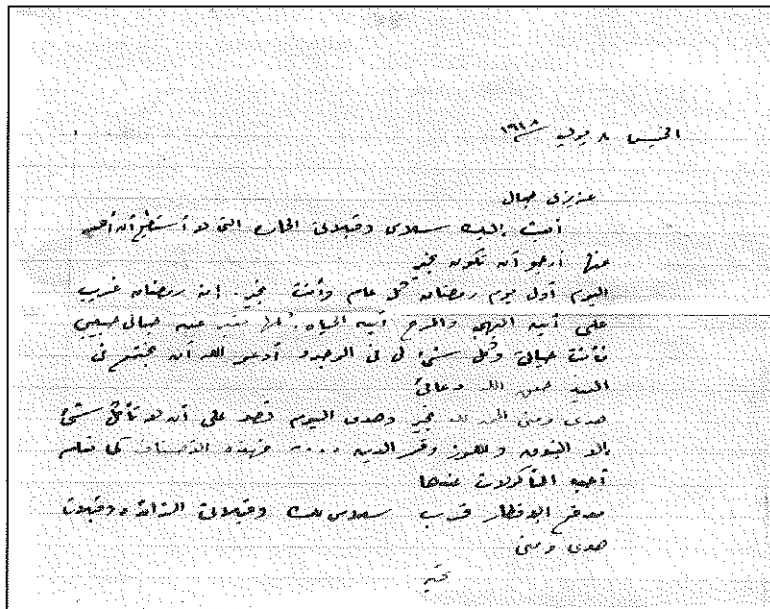 الخميس ٨ يوليه ١٩٤٨
عزيزى جمال
أبعث إليك سلامى وقبلاتى الحارة التى لا أستطيع أن أعبر
عنها أرجو أن تكون بخير
اليوم أول يوم رمضان كل عام وأنت بخير. إن رمضان غريب
على أين البهجة والمرح أين الحياة. كلها جمال حبيبى
فأنت حياتى وكل شئ لى فى الوجود أدعو الله أن نجتمع فى
العيد حقق الله دعائى
هدى ومنى الحمد لله بخير وهدى اليوم تصر على أن لا تأكل شئ
إلا النقوع واللوز وقمر الدين .... فهذه الأصناف كما تعلم
أحب المأكولات عندها
مدفع الإفطار قرب سلامى لك وقبلاتى الزائدة وقبلات
هدى ومنى
تحية